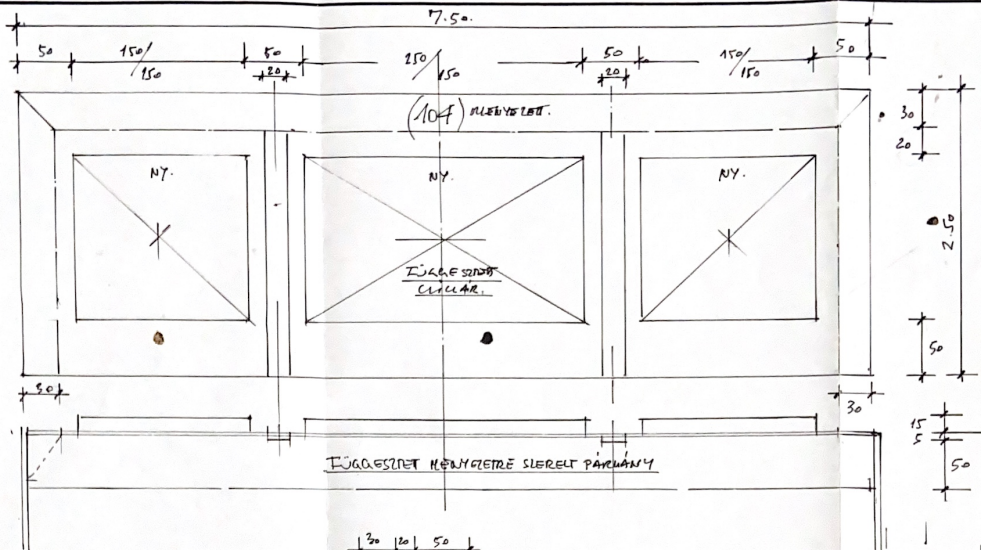 7.50.
50 150/150 50 250/150 50 150/150 50
20 20
(104) MENYEZET.
30
20
NY. NY. NY.
2.50
FÜGGESZTETT
CSILLÁR.
50
30 30
15
5
FÜGGESZTETT MENYEZETRE SZERELT PÁRKÁNY
50
30 20 50